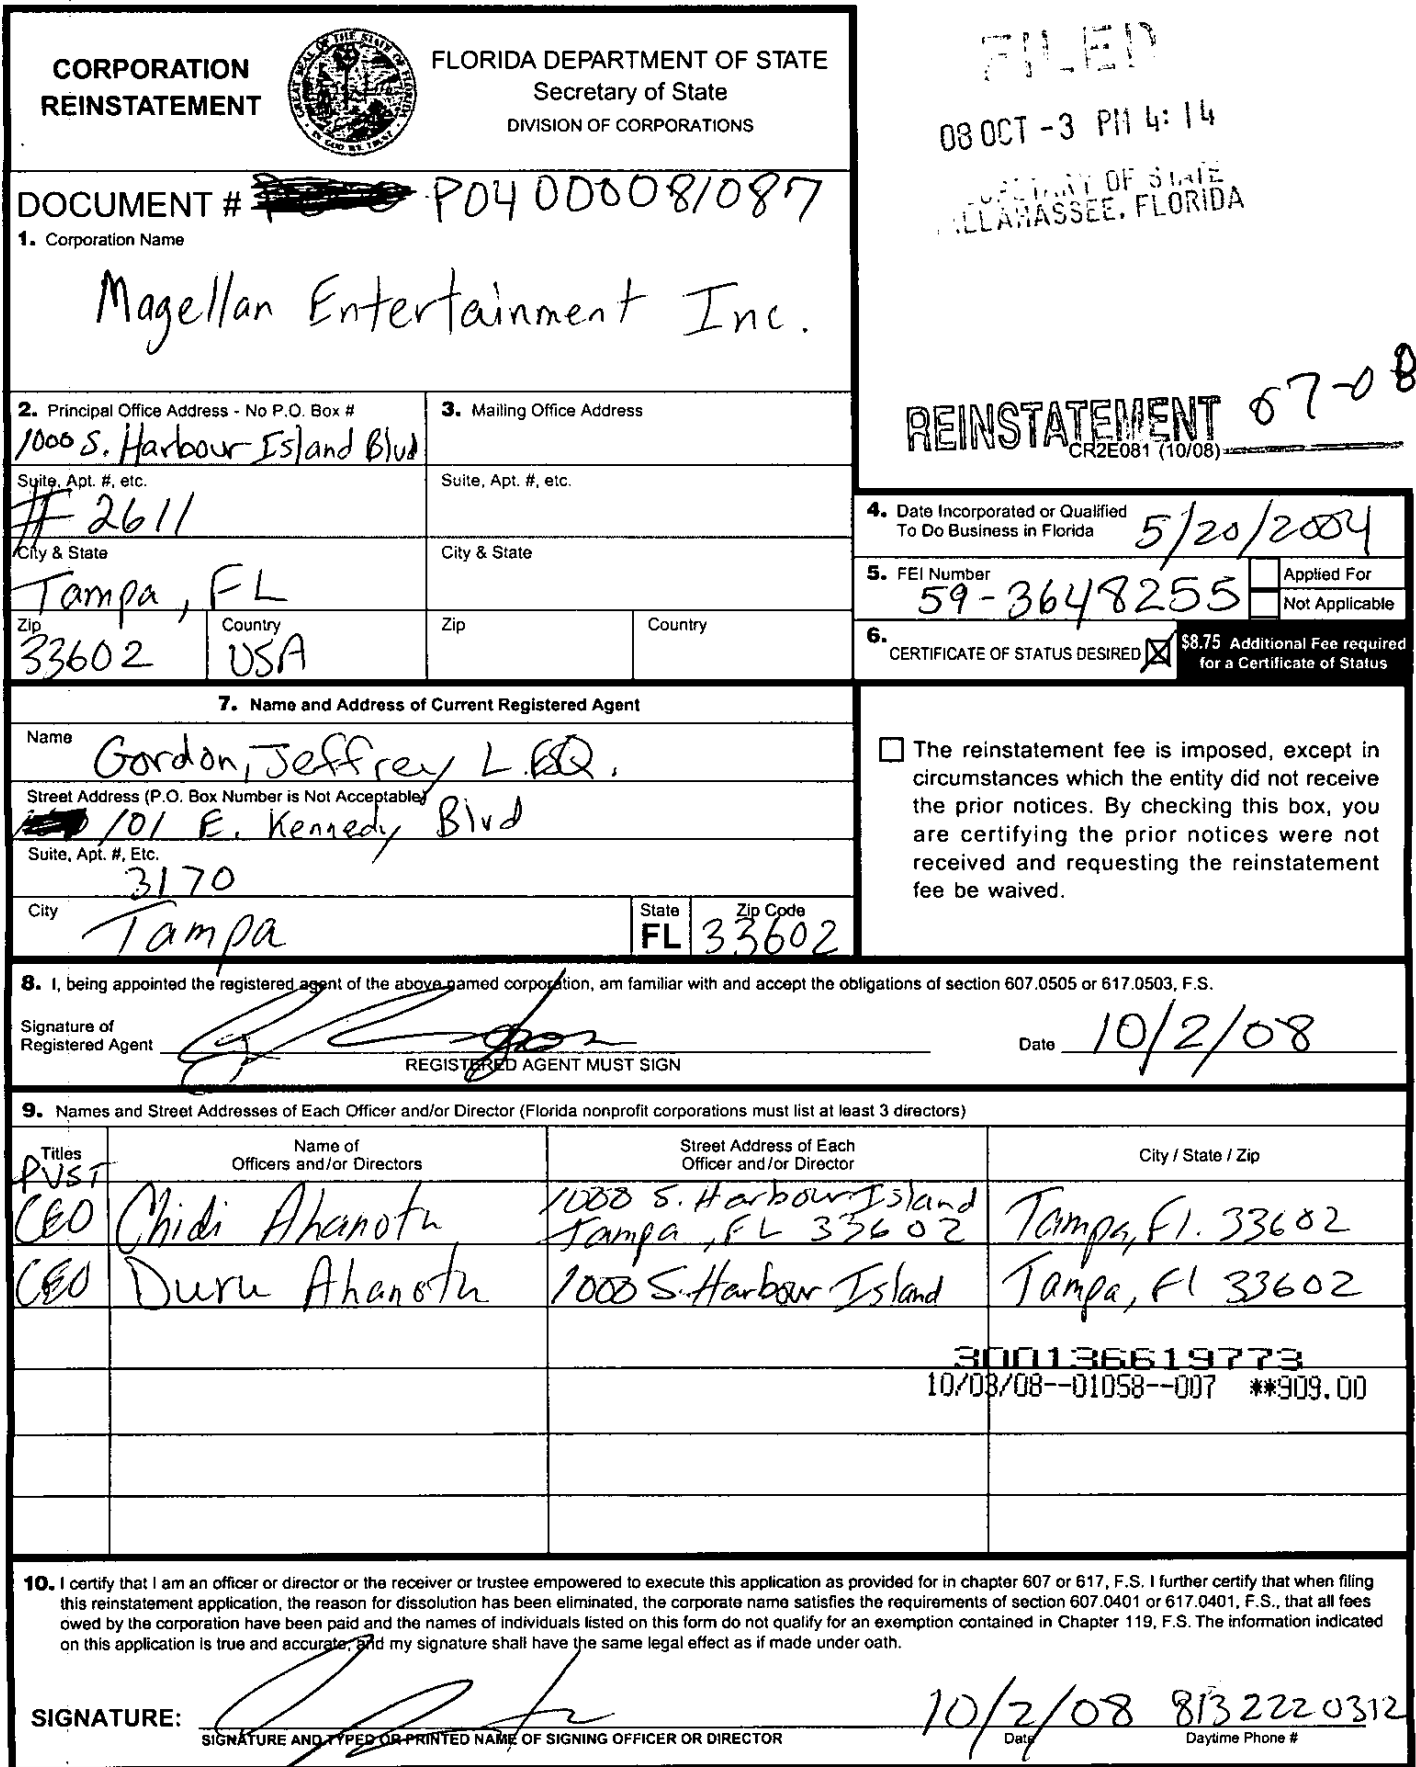 CORPORATION
REINSTATEMENT
GREAT SEAL OF THE STATE OF FLORIDA
IN GOD WE TRUST
FLORIDA DEPARTMENT OF STATE
Secretary of State
DIVISION OF CORPORATIONS
FILED
08 OCT -3 PM 4:14
OF STATE
FLORIDA
DOCUMENT # P04000081087
1. Corporation Name
Magellan Entertainment Inc.
REINSTATEMENT 07-08
CR2E081 (10/08)
2. Principal Office Address - No P.O. Box #
1000 S. Harbour Island Blvd
3. Mailing Office Address
Suite, Apt. #, etc.
# 2611
Suite, Apt. #, etc.
City & State
Tampa, FL
City & State
Zip
33602
Country
USA
Zip
Country
4. Date Incorporated or Qualified
To Do Business in Florida
5/20/2004
5. FEI Number
59-3648255
Applied For
Not Applicable
6. CERTIFICATE OF STATUS DESIRED
$8.75 Additional Fee required
for a Certificate of Status
7. Name and Address of Current Registered Agent
Name
Gordon, Jeffrey L. ESQ.
Street Address (P.O. Box Number is Not Acceptable)
101 E. Kennedy Blvd
Suite, Apt. #, Etc.
3170
City
Tampa
State
FL
Zip Code
33602
The reinstatement fee is imposed, except in
circumstances which the entity did not receive
the prior notices. By checking this box, you
are certifying the prior notices were not
received and requesting the reinstatement
fee be waived.
8. I, being appointed the registered agent of the above named corporation, am familiar with and accept the obligations of section 607.0505 or 617.0503, F.S.
Signature of
Registered Agent
REGISTERED AGENT MUST SIGN
Date 10/2/08
9. Names and Street Addresses of Each Officer and/or Director (Florida nonprofit corporations must list at least 3 directors)
Titles
Name of
Officers and/or Directors
Street Address of Each
Officer and/or Director
City / State / Zip
PVST
CEO Chidi Ahanotu 1000 S. Harbour Island
Tampa, FL 33602 Tampa, Fl. 33602
CEO Duru Ahanotu 1000 S. Harbour Island Tampa, Fl 33602
300136619773
10/03/08--01058--007 **909.00
10. I certify that I am an officer or director or the receiver or trustee empowered to execute this application as provided for in chapter 607 or 617, F.S. I further certify that when filing
this reinstatement application, the reason for dissolution has been eliminated, the corporate name satisfies the requirements of section 607.0401 or 617.0401, F.S., that all fees
owed by the corporation have been paid and the names of individuals listed on this form do not qualify for an exemption contained in Chapter 119, F.S. The information indicated
on this application is true and accurate, and my signature shall have the same legal effect as if made under oath.
SIGNATURE:
SIGNATURE AND TYPED OR PRINTED NAME OF SIGNING OFFICER OR DIRECTOR
10/2/08
Date
813 222 0312
Daytime Phone #